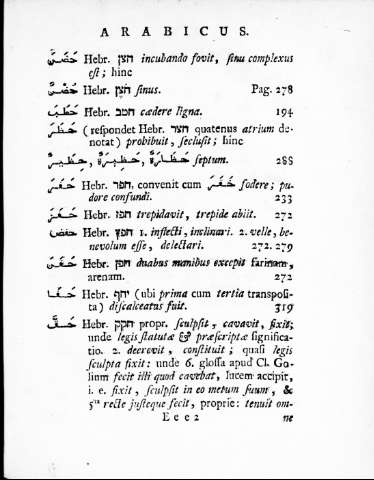 ARABICUS.
حَضَنَ Hebr. חצן incubando fovit, sinu complexus
est; hinc
حُضْنٌ Hebr. חצן sinus. Pag. 278
حَطَبَ Hebr. חטב cædere ligna. 194
حَظَرَ (respondet Hebr. חצר quatenus atrium de-
notat) probibuit, seclusit; hinc
حِظَارَةٌ, حَظِيرَةٌ, حَظِيرٌ septum. 288
حَفَرَ Hebr. חפר, convenit cum خَفَرَ fodere; pu-
dore confundi. 233
حَفَزَ Hebr. חפז trepidavit, trepide abiit. 272
حفض Hebr. חפץ 1. inflecti, inclinari. 2. velle, be-
nevolum esse, delectari. 272. 279
حَفَنَ Hebr. חפן duabus manibus excepit farinam,
arenam. 272
حَفَا Hebr. יחף (ubi prima cum tertia transposi-
ta) discalceatus fuit. 319
حَقَّ Hebr. חקק propr. sculpsit, cavavit, fixit;
unde legis statutæ & præscriptæ significa-
tio. 2. decrevit, constituit; quasi legis
sculpta fixit: unde 6. glossa apud Cl. Go-
lium fecit illi quod cavebat, lucem accipit,
i. e. fixit, sculpsit in eo metum suum, &
5ta recte justeque fecit, proprie: tenuit om-
Eee2 ne